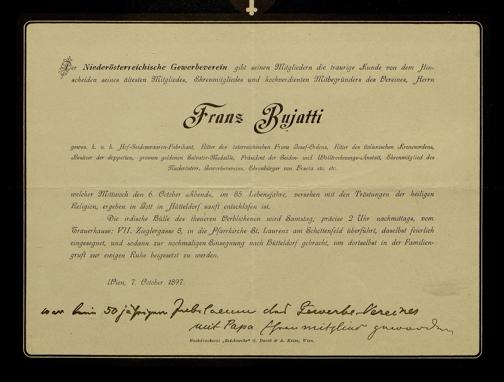 Der Niederösterreichische Gewerbeverein gibt seinen Mitgliedern die traurige Kunde von dem Hin-
scheiden seines ältesten Mitgliedes, Ehrenmitgliedes und hochverdienten Mitbegründers des Vereines, Herrn
Franz Bujatti
gewes. k. u. k. Hof-Seidenwaaren-Fabrikant, Ritter des österreichischen Franz Josef-Ordens, Ritter des italienischen Kronenordens,
Besitzer der doppelten, grossen goldenen Salvator-Medaille, Präsident der Seiden- und Wolltrocknungs-Anstalt, Ehrenmitglied des
Niederösterr. Gewerbevereins, Ehrenbürger von etc. etc.
welcher Mittwoch den 6. October Abends, im 85. Lebensjahre, versehen mit den Tröstungen der heiligen
Religion, ergeben in Gott in Hütteldorf sanft entschlafen ist.
Die irdische Hülle des theueren Verblichenen wird Samstag, präcise 2 Uhr nachmittags, vom
Trauerhause: VII. Zieglergasse 8, in die Pfarrkirche St. Laurenz am Schottenfeld überführt, daselbst feierlich
eingesegnet, und sodann zur nochmaligen Einsegnung nach Hütteldorf gebracht, um dortselbst in der Familien-
gruft zur ewigen Ruhe beigesetzt zu werden.
Wien, 7. October 1897.
war beim 50 jährigen Jubilaeum des Gewerbe-Vereines
mit Papa Ehrenmitglied geworden
Buchdruckerei G. David & A. Keiss, Wien.